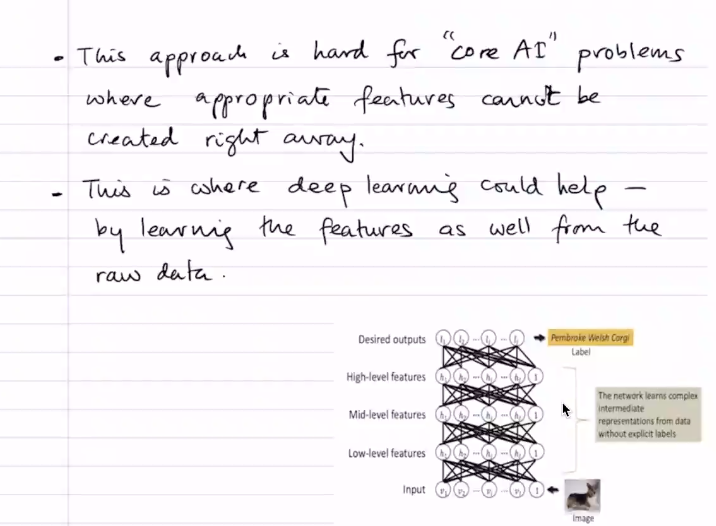 • This approach is hard for "core AI" problems
where appropriate features cannot be
created right away.
- This is where deep learning could help –
by learning the features as well from the
raw data.
Desired outputs l₁ l₂ ... lᵢ ... lⱼ Pembroke Welsh Corgi
Label
High-level features h₁ h₂ ... hᵢ ... hⱼ 1
Mid-level features h₁ h₂ ... hᵢ ... hⱼ 1
Low-level features h₁ h₂ ... hᵢ ... hⱼ 1
Input v₁ v₂ ... vᵢ ... vⱼ 1
Image
The network learns complex
intermediate
representations from data
without explicit labels